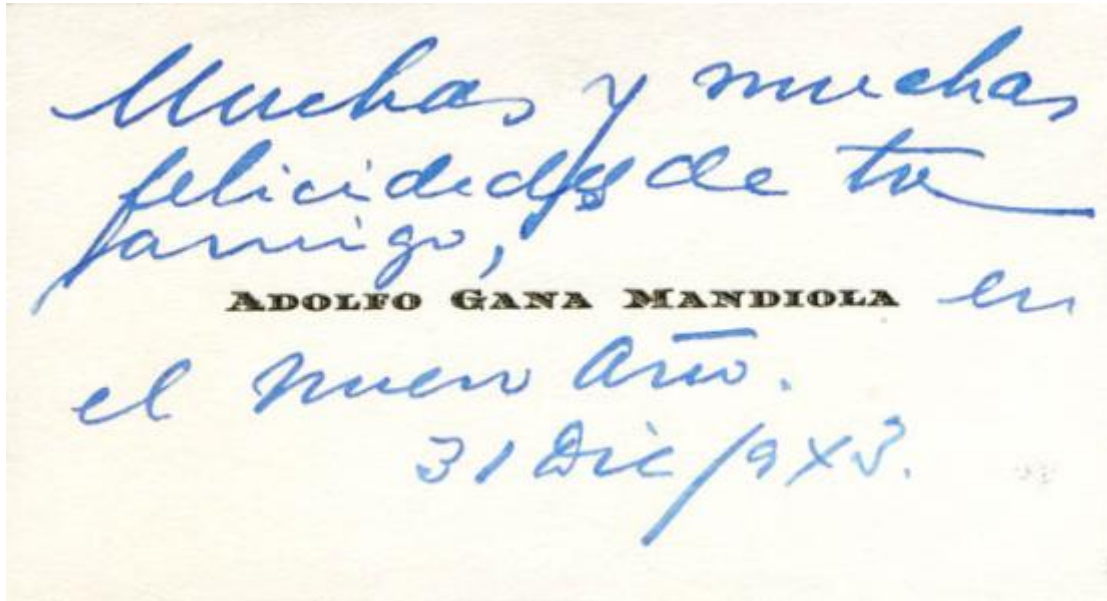 Muchas y muchas
felicidades de tu
amigo,
ADOLFO GANA MANDIOLA en
el nuevo Año.
31 Dic/943.